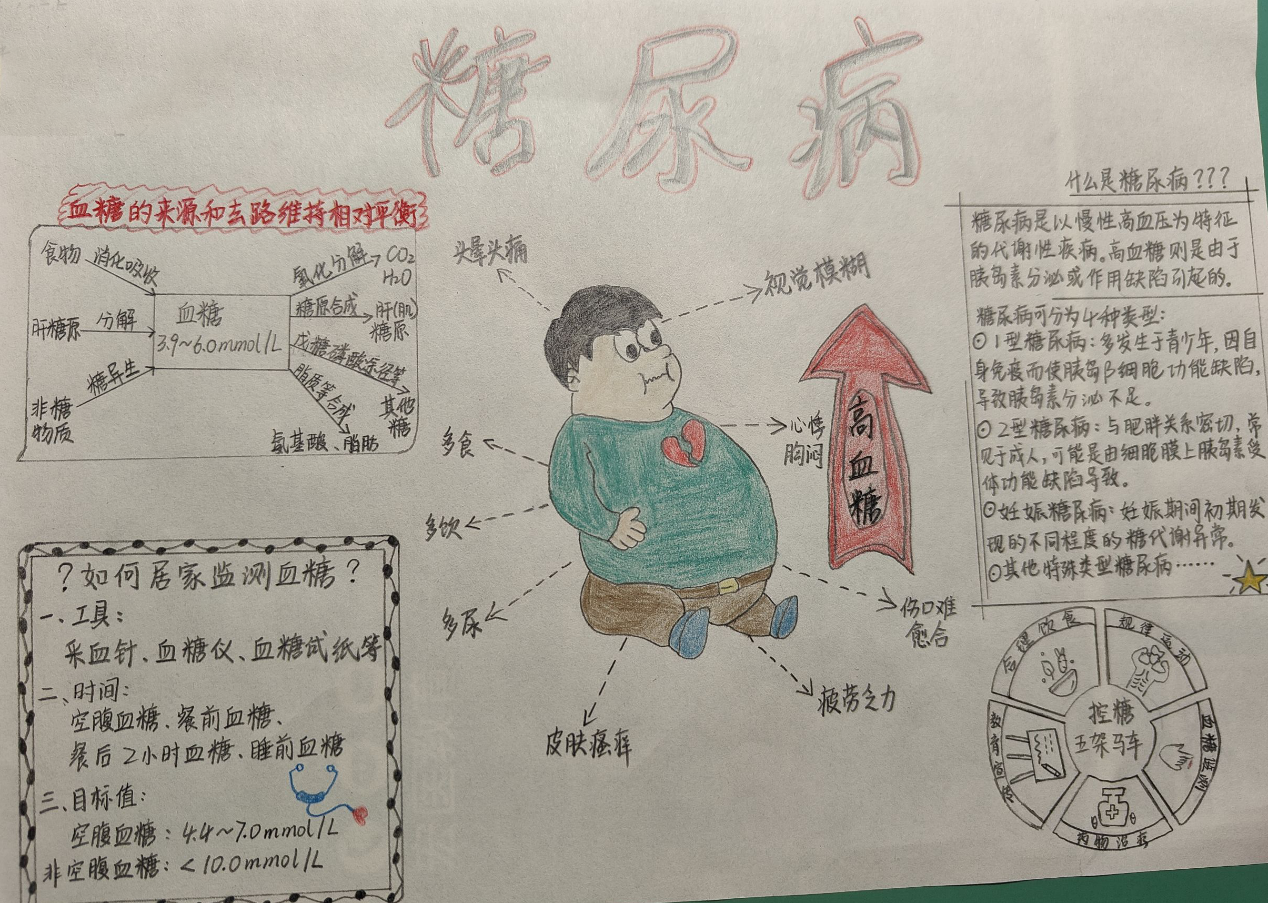 糖尿病
血糖的来源和去路维持相对平衡
食物 消化吸收
肝糖原 分解
非糖
物质
糖异生
血糖
3.9~6.0mmol/L
氧化分解 CO₂
H₂O
糖原合成 肝(肌)
糖原
戊糖磷酸途径等
其他
糖
脂质等合成
氨基酸、脂肪
?如何居家监测血糖?
一、工具:
采血针、血糖仪、血糖试纸等
二、时间:
空腹血糖、餐前血糖、
餐后2小时血糖、睡前血糖
三、目标值:
空腹血糖:4.4~7.0mmol/L
非空腹血糖:<10.0mmol/L
头晕头痛
视觉模糊
多食
心悸
胸闷
多饮
多尿
伤口难
愈合
疲劳乏力
皮肤瘙痒
高血糖
什么是糖尿病???
糖尿病是以慢性高血压为特征
的代谢性疾病。高血糖则是由于
胰岛素分泌或作用缺陷引起的。
糖尿病可分为4种类型:
⊙1型糖尿病:多发生于青少年,因自
身免疫而使胰岛β细胞功能缺陷,
导致胰岛素分泌不足。
⊙2型糖尿病:与肥胖关系密切,常
见于成人,可能是由细胞膜上胰岛素受
体功能缺陷导致。
⊙妊娠糖尿病:妊娠期间初期发
现的不同程度的糖代谢异常。
⊙其他特殊类型糖尿病……
控糖
五架马车
合理饮食
规律运动
血糖监测
药物治疗
教育宣传